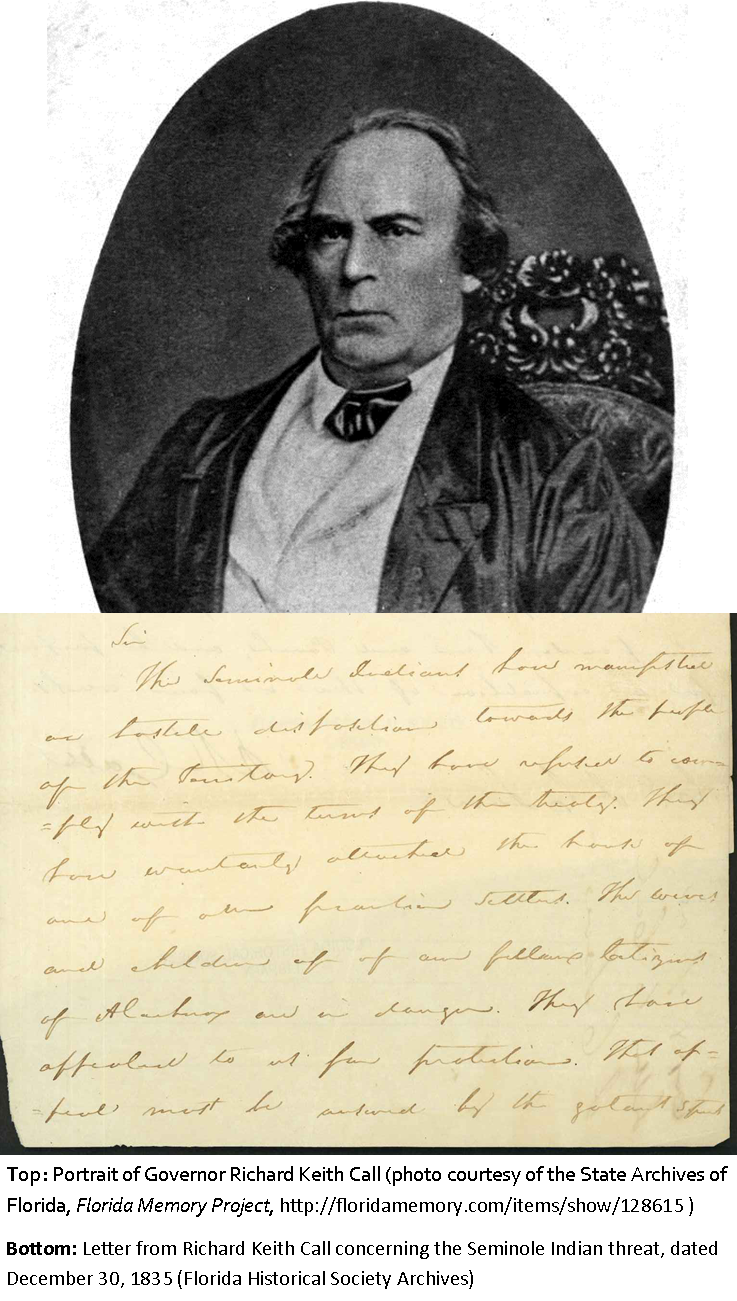 Sir
The Seminole Indians have manifested
an hostile disposition towards the people
of the Territory. They have refused to com-
=ply with the terms of the treaty. They
have wantonly attacked the house of
one of our frontier settlers. The wives
and children of of our fellow Citizens
of Alachua are in danger. They have
appealed to us for protection. This ap=
=peal must be answered by the galant
Top: Portrait of Governor Richard Keith Call (photo courtesy of the State Archives of
Florida, Florida Memory Project, http://floridamemory.com/items/show/128615 )
Bottom: Letter from Richard Keith Call concerning the Seminole Indian threat, dated
December 30, 1835 (Florida Historical Society Archives)